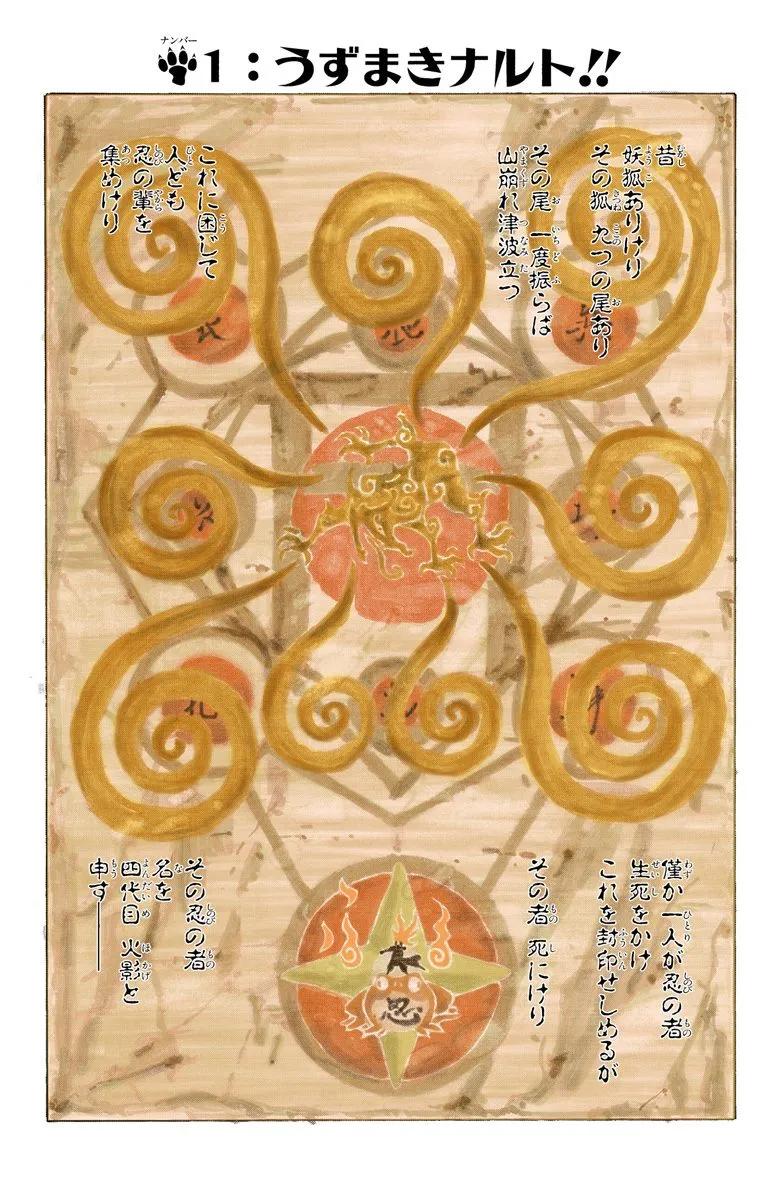 ナンバー
1：うずまきナルト!!
昔
妖狐ありけり
その狐 九つの尾あり
その尾 一度振らば
山崩れ津波立つ
これに困じて
人ども
忍の輩を
集めけり
僅か一人が忍の者
生死をかけ
これを封印せしめるが
その者 死にけり
その忍の者
名を
四代目 火影と
申す――
忍